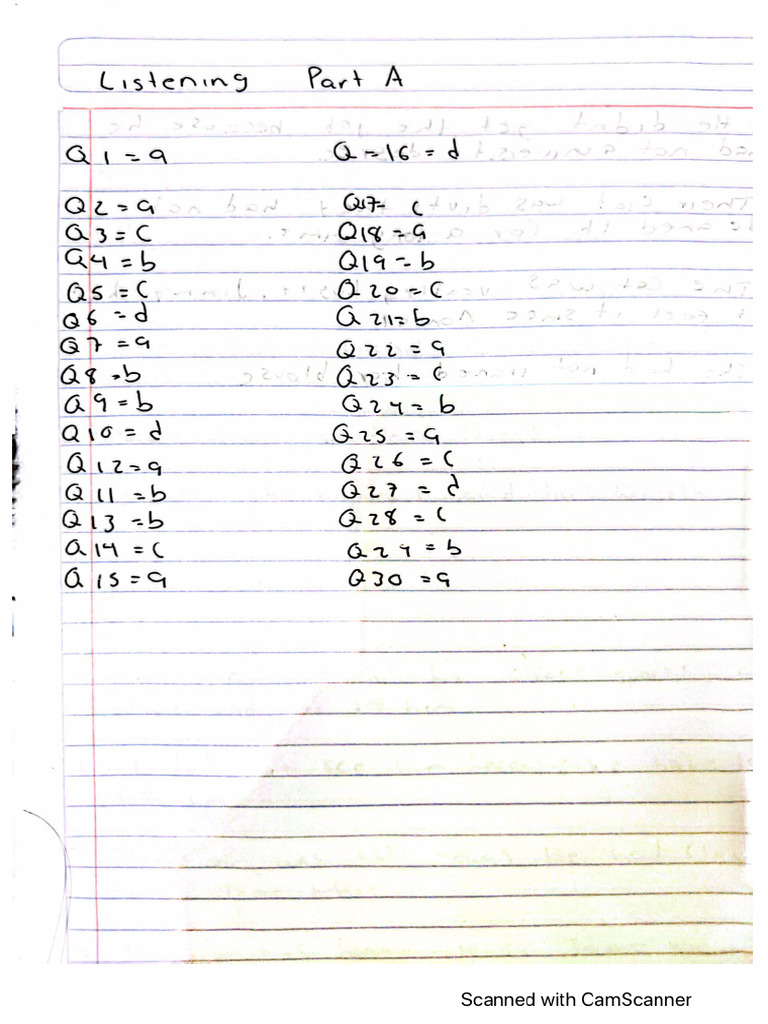 Listening Part A
Q 1 = a
Q 2 = a
Q 3 = c
Q 4 = b
Q 5 = c
Q 6 = d
Q 7 = a
Q 8 = b
Q 9 = b
Q 10 = d
Q 12 = a
Q 11 = b
Q 13 = b
Q 14 = c
Q 15 = a
Q = 16 = d
Q17= c
Q18 = a
Q19 = b
Q 20 = c
Q 21 = b
Q 22 = a
Q 23 = c
Q 24 = b
Q 25 = a
Q 26 = c
Q 27 = d
Q 28 = c
Q 29 = b
Q 30 = a
Scanned with CamScanner